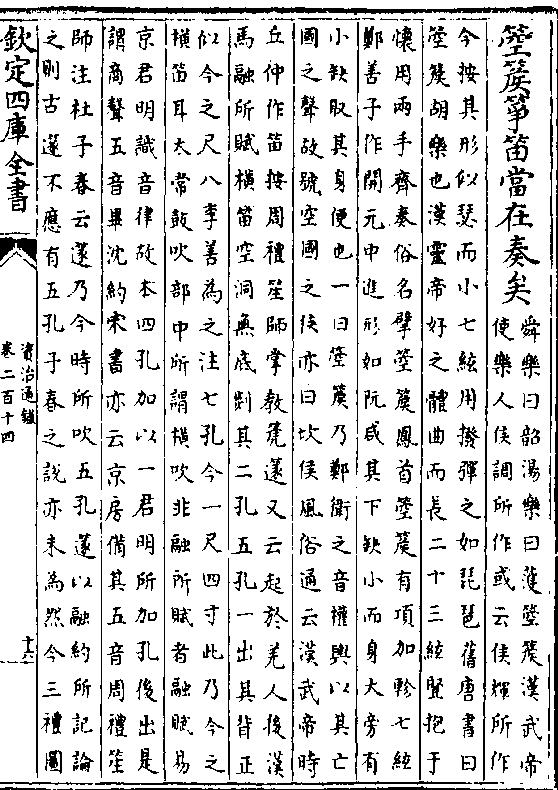 箜篌箏笛當在奏矣
舜樂曰韶湯樂曰䕶箜篌漢武帝
使樂人侯調所作或云侯輝所作
今按其形似瑟而小七絃用撥彈之如琵琶舊唐書曰
箜篌胡樂也漢靈帝好之體曲而長二十三絃豎抱于
懷用兩手齊奏俗名擘箜篌鳳首箜篌有項加軫七絃
鄭善子作開元中進形如阮咸其下缺小而身大旁有
小缺取其身便也一曰箜篌乃鄭衛之音權輿以其亡
國之聲故號空國之侯亦曰坎侯風俗通云漢武帝時
丘仲作笛按周禮笙師掌教篪篴又云起於羌人後漢
馬融所賦橫笛空洞無底剡其二孔五孔一出其背正
似今之尺八李善為之注七孔今一尺四寸此乃今之
橫笛耳太常鼓吹部中所謂橫吹非融所賦者融賦易
京君明識音律故本四孔加以一君明所加孔後出是
謂商聲五音畢沈約宋書亦云京房備其五音周禮笙
師注杜子春云篴乃今時所吹五孔篴以融約所記論
之則古篴不應有五孔子春之說亦未為然今三禮圖
欽定四庫全書
資治通鑑
卷二百十四
十六